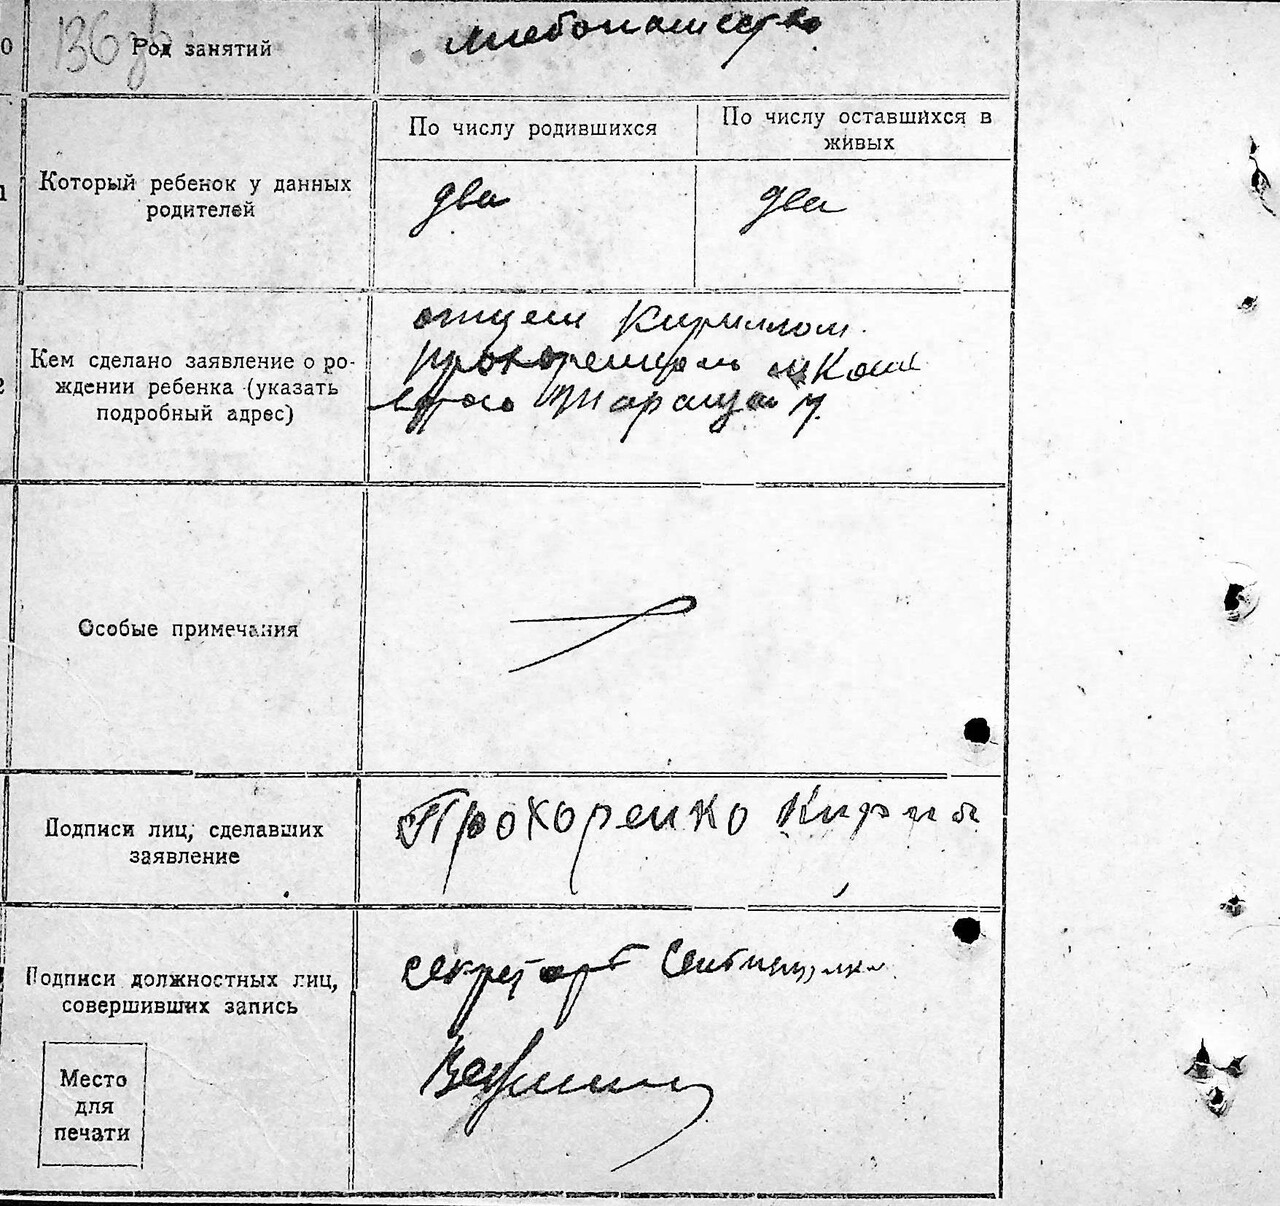 0
Род занятий
хлебопашество
По числу родившихся
По числу оставшихся в
живых
1
Который ребенок у данных
родителей
два
два
2
Кем сделано заявление о ро-
ждении ребенка (указать
подробный адрес)
отцем Кириллом
Особые примечания
Подписи лиц, сделавших
заявление
Прохоренко Кирил
Подписи должностных лиц,
совершивших запись
секретарь
Место
для
печати